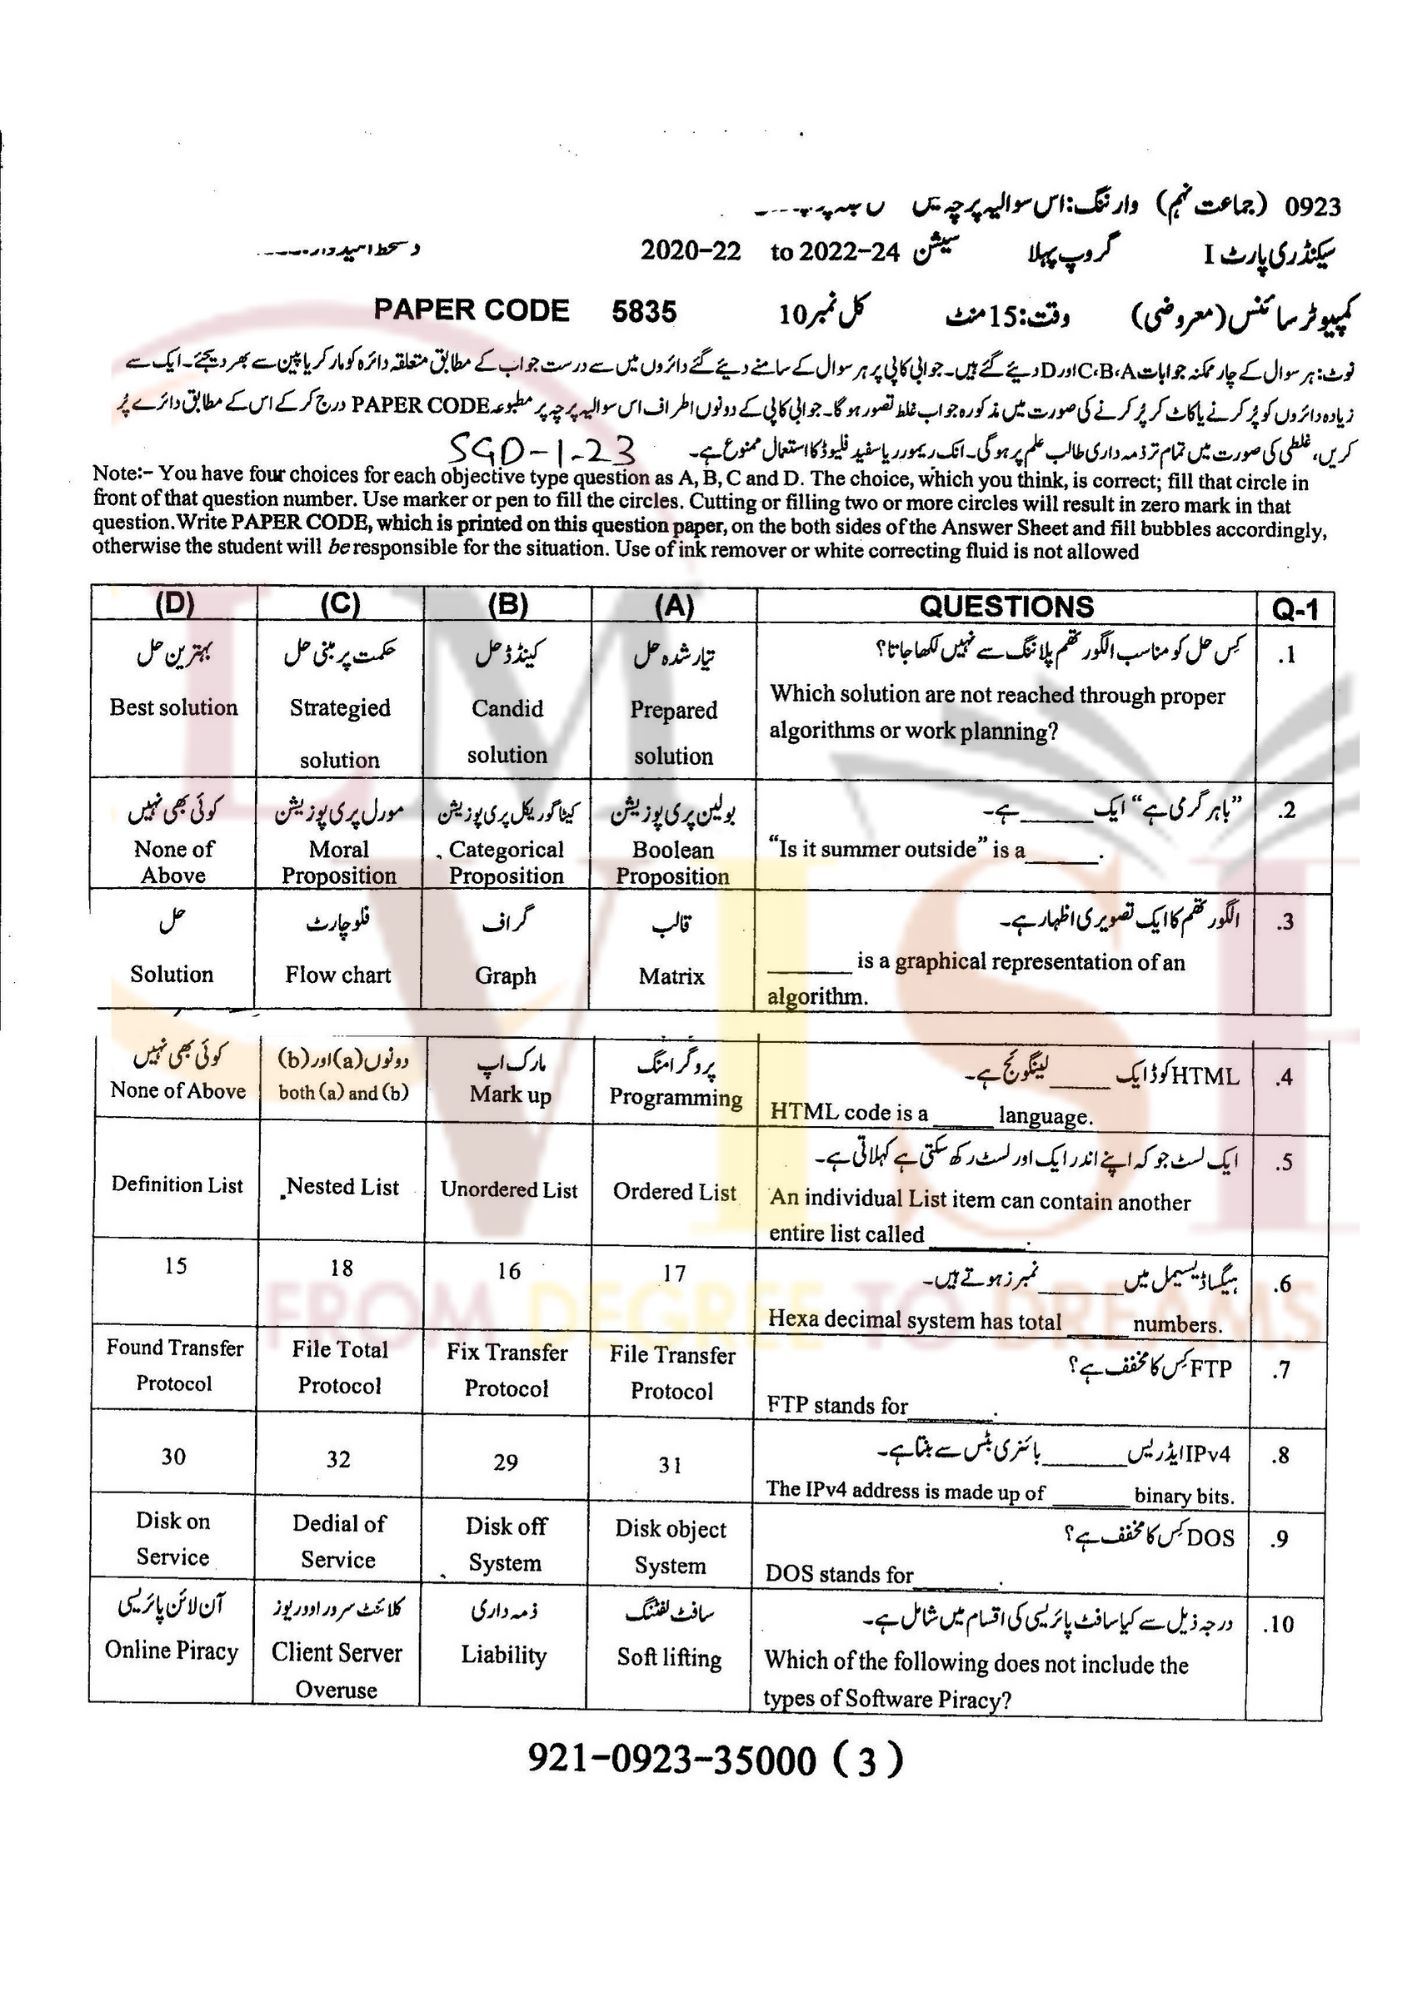 0923 (جماعت نہم) وارننگ: اس سوالیہ پرچہ میں
سیکنڈری پارٹ I گروپ پہلا سیشن 2020-22 to 2022-24 دستخط امیدوار-----
کمپیوٹر سائنس (معروضی) وقت: 15 منٹ کل نمبر 10 PAPER CODE 5835
نوٹ: ہر سوال کے چار ممکنہ جوابات C، B، A اور D دیئے گئے ہیں۔ جوابی کاپی پر ہر سوال کے سامنے دیئے گئے دائروں میں سے درست جواب کے مطابق متعلقہ دائرہ کو مارکر یا پین سے بھر دیجئے۔ ایک سے
زیادہ دائروں کو پُر کرنے یا کاٹ کر پُر کرنے کی صورت میں مذکورہ جواب غلط تصور ہوگا۔ جوابی کاپی کے دونوں اطراف اس سوالیہ پرچہ پر مطبوعہ PAPER CODE درج کر کے اس کے مطابق دائرے پُر
کریں، غلطی کی صورت میں تمام تر ذمہ داری طالب علم پر ہوگی۔ انک ریمورر یا سفید فلیوڈ کا استعمال ممنوع ہے۔ SGD-1-23
Note:- You have four choices for each objective type question as A, B, C and D. The choice, which you think, is correct; fill that circle in
front of that question number. Use marker or pen to fill the circles. Cutting or filling two or more circles will result in zero mark in that
question. Write PAPER CODE, which is printed on this question paper, on the both sides of the Answer Sheet and fill bubbles accordingly,
otherwise the student will be responsible for the situation. Use of ink remover or white correcting fluid is not allowed
(D) (C) (B) (A) QUESTIONS Q-1
بہترین حل حکمت پر مبنی حل کینڈڈ حل تیار شدہ حل کِس حل کو مناسب الگورتھم پلاننگ سے نہیں لکھا جاتا؟ .1
Best solution Strategied Candid Prepared Which solution are not reached through proper
solution solution solution algorithms or work planning?
کوئی بھی نہیں مورل پری پوزیشن کیٹاگوریکل پری پوزیشن بولین پری پوزیشن ”باہر گرمی ہے“ ایک ______ ہے۔ .2
None of Moral Categorical Boolean “Is it summer outside” is a ______.
Above Proposition Proposition Proposition
حل فلو چارٹ گراف قالب الگورتھم کا ایک تصویری اظہار ہے۔ .3
Solution Flow chart Graph Matrix ______ is a graphical representation of an
algorithm.
کوئی بھی نہیں دونوں (a) اور (b) مارک اپ پروگرامنگ HTML کوڈ ایک ______ لینگوئج ہے۔ .4
None of Above both (a) and (b) Mark up Programming HTML code is a ______ language.
ایک لسٹ جو کہ اپنے اندر ایک اور لسٹ رکھ سکتی ہے کہلاتی ہے۔ .5
Definition List Nested List Unordered List Ordered List An individual List item can contain another
entire list called ______.
15 18 16 17 ہیگساڈیسیمل میں ______ نمبرز ہوتے ہیں۔ .6
Hexa decimal system has total ______ numbers.
Found Transfer File Total Fix Transfer File Transfer FTP کِس کا مخفف ہے؟ .7
Protocol Protocol Protocol Protocol FTP stands for ______.
30 32 29 31 IPv4 ایڈریس ______ بائنری بٹس سے بنتا ہے۔ .8
The IPv4 address is made up of ______ binary bits.
Disk on Dedial of Disk off Disk object DOS کِس کا مخفف ہے؟ .9
Service Service System System DOS stands for ______.
آن لائن پائریسی کلائنٹ سرور اوور یوز ذمہ داری سافٹ لفٹنگ درجہ ذیل سے کیا سافٹ پائریسی کی اقسام میں شامل ہے۔ .10
Online Piracy Client Server Liability Soft lifting Which of the following does not include the
Overuse types of Software Piracy?
921-0923-35000 (3)
FROM DEGREE TO DREAMS